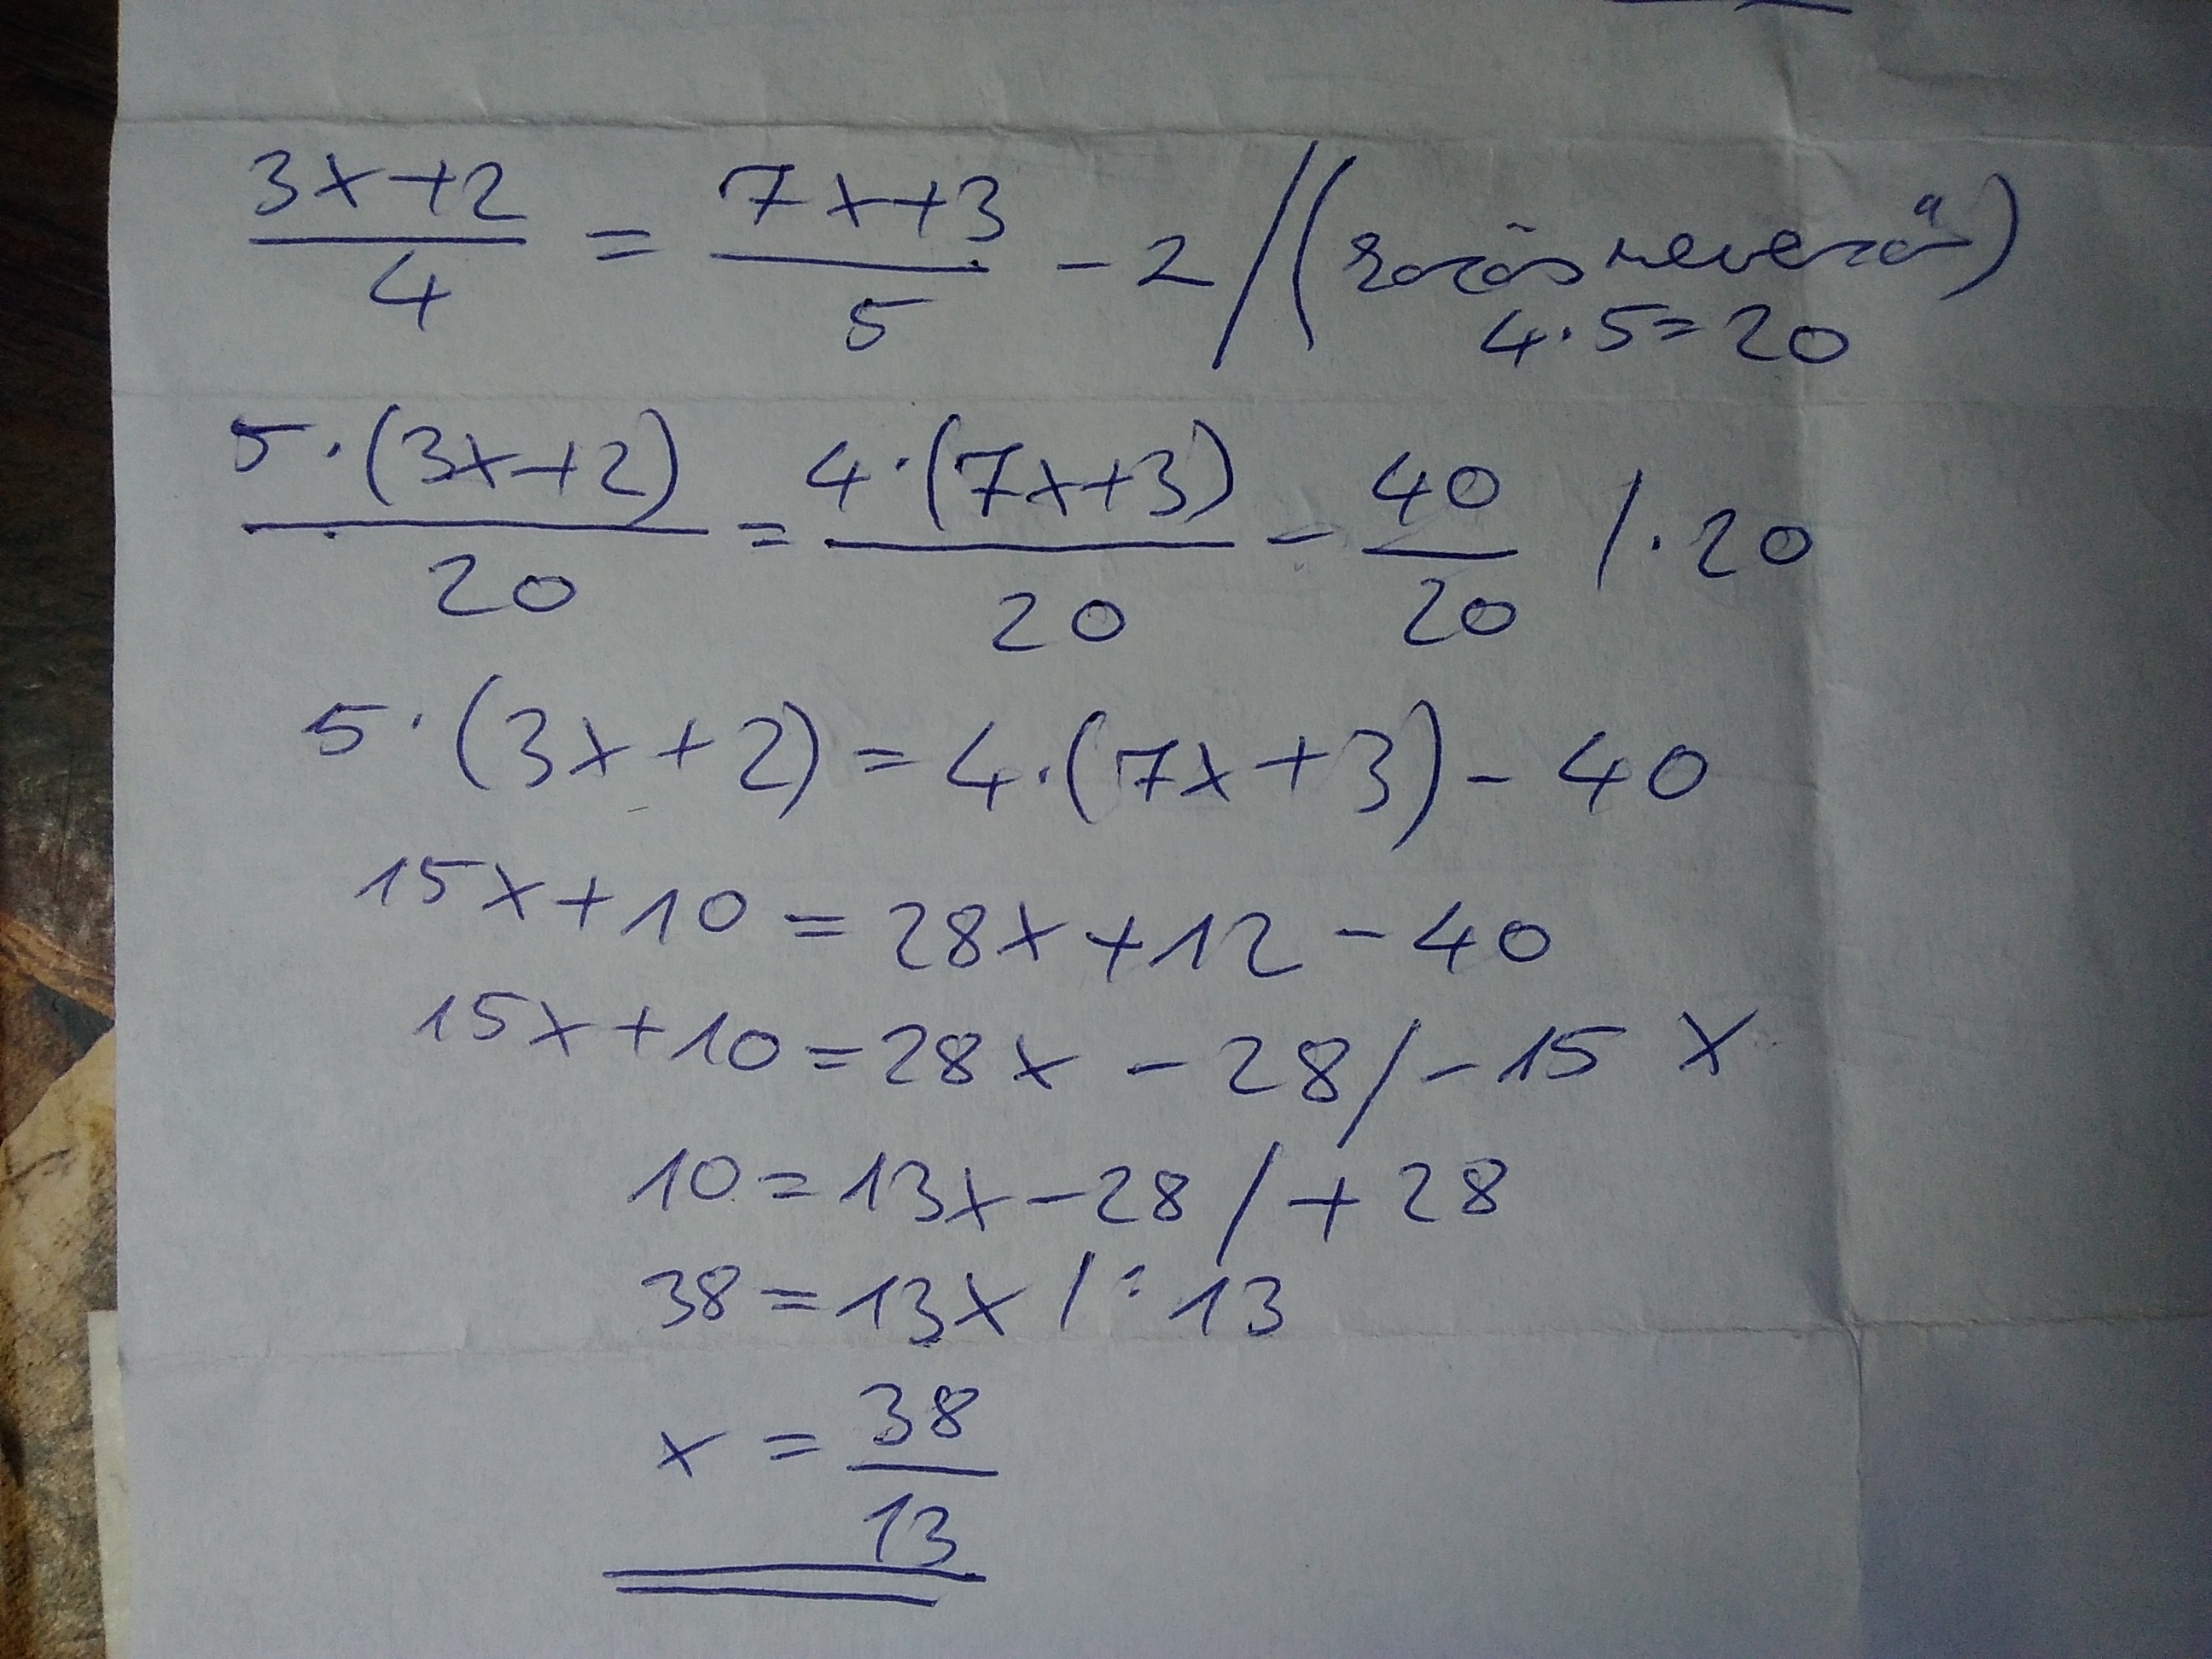 (3x+2)/4 = (7x+3)/5 - 2 /(közös nevező)
4·5=20
5·(3x+2)/20 = 4·(7x+3)/20 - 40/20 /·20
5·(3x+2)=4·(7x+3)-40
15x+10=28x+12-40
15x+10=28x-28/-15x
10=13x-28/+28
38=13x/:13
x=38/13